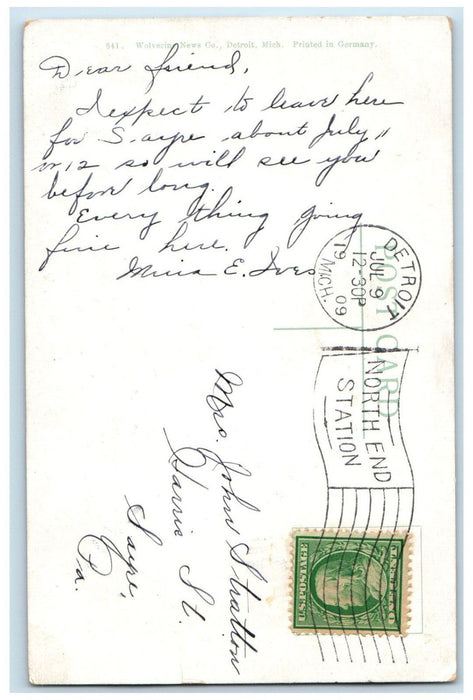 541. Wolverine News Co., Detroit, Mich. Printed in Germany.
Dear friend,
I expect to leave here
for Sayre about July 11
or 12 so will see you
before long.
Every thing going
fine here.
Mina E. Ives
POST CARD
DETROIT
JUL 9
12-30P
1909
MICH.
NORTH END
STATION
Mrs. John Stratton
Harris St.
Sayre,
Pa.
U.S. POSTAGE
ONE CENT